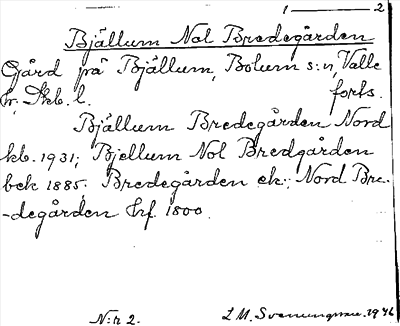 1 — 2
Bjällum Nol Bredegården
Gård på Bjällum, Bolum s:n, Valle
hr, Skb. l. forts.
Bjällum Bredegården Nord
kb. 1931; Bjellum Nol Bredgården
bek 1885. Bredegården ek.; Nord Bre-
-degården Hrf. 1800.
N:r 2. L. M. Svenungsson. 1946